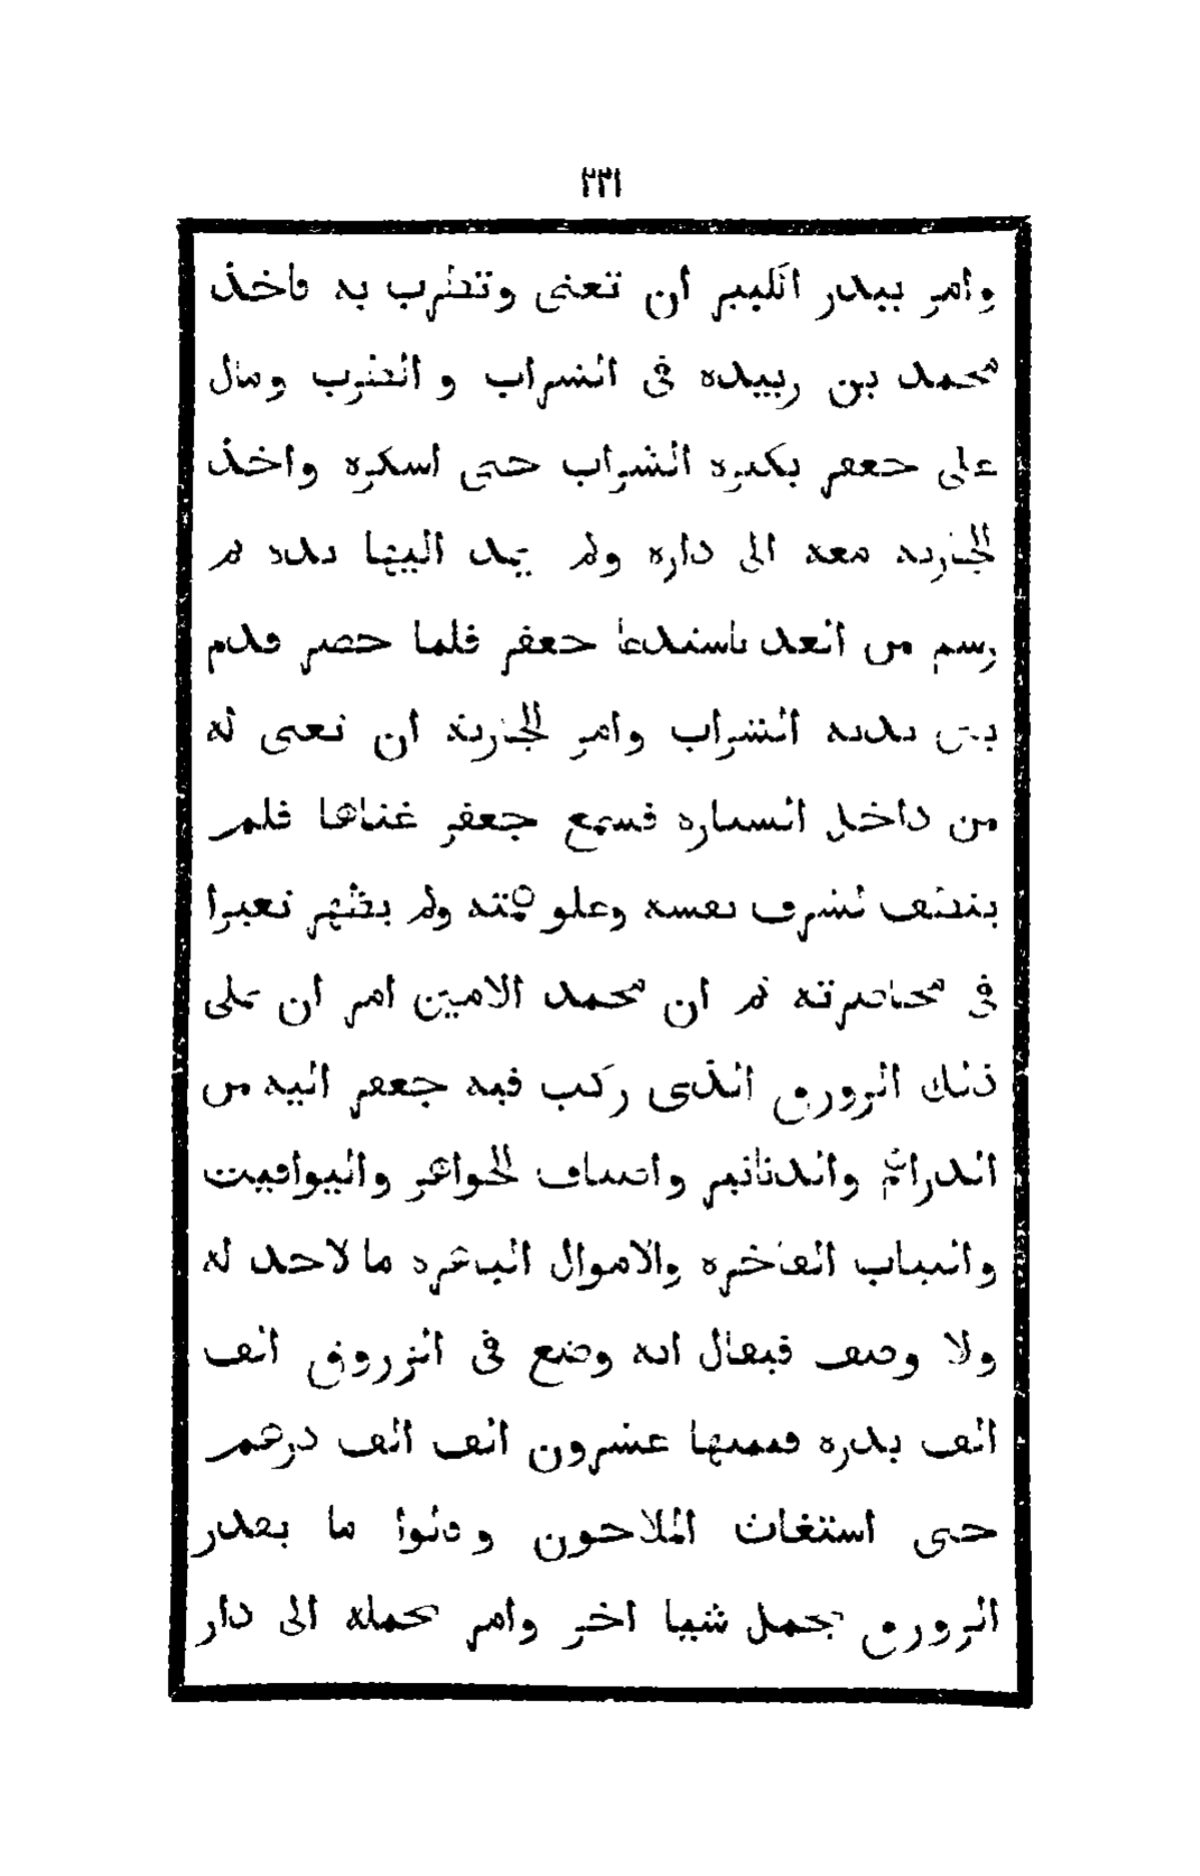 ٢٣١
وامر ببدر الكبير ان تغنى وتطرب به فاخذ
محمد بن زبيده فى الشراب و الطرب ومال
على جعفر بكثره الشراب حتى اسكره واخذ
الجاريه معه الى داره ولم يمد اليها يده ثم
رسم من الغد باستدعا جعفر فلما حضر قدم
بين يديه الشراب وامر الجارية ان تغنى له
من داخل الستاره فسمع جعفر غناها فلم
ينطق لشرف نفسه وعلو همته ولم يظهر تغيرا
فى محاضرته ثم ان محمد الامين امر ان يملى
ذلك الزورق الذى ركب فيه جعفر اليه من
الدراهم والدنانير واصناف الجواهر واليواقيت
والثياب الفاخره والاموال الباهره ما لا حد له
ولا وصف فيقال انه وضع فى الزروق الف
الف بدره قيمتها عشرون الف الف درهم
حتى استغاث الملاحون وقالوا ما يقدر
الزورق يحمل شيا اخر وامر بحمله الى دار